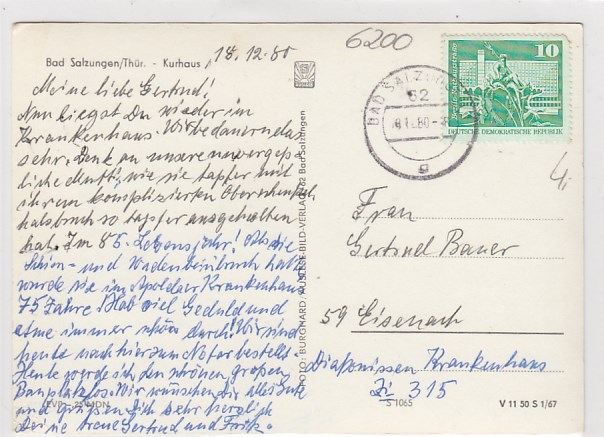 Bad Salzungen/Thür. - Kurhaus
18.12.80
6200
Meine liebe Gertrud!
Nun liegst Du wieder im
Krankenhaus. Wir bedauern das
sehr. Denk an unsere unverges-
liche Mutti, wie sie tapfer mit
ihrem komplizierten Oberschenkel-
halsbruch so tapfer ausgehalten
hat. Im 85. Lebensjahr! Als sie
Schien- und Wadenbeinbruch hatte
wurde sie im Apoldaer Krankenhaus
75 Jahre. Hab viel Geduld und
atme immer schön durch! Wir sind
heute nachhier zum Notar bestellt.
Heute werde ich den schönen großen
Bauplatz los. Wir wünschen Dir alles Gute
und grüßen Dich sehr herzlich
Deine treue Gertrud und Fritz.
EVP -,25 MDN
FOTO: BURGHARD / AUSLESE-BILD-VERLAG 62 Bad Salzungen
BAD SALZUNGEN
62
a
10
DEUTSCHE DEMOKRATISCHE REPUBLIK
Frau
Gertrud Bauer
59 Eisenach
Diakonissen Krankenhaus
Zi 315
S 1065
V 11 50 S 1/67